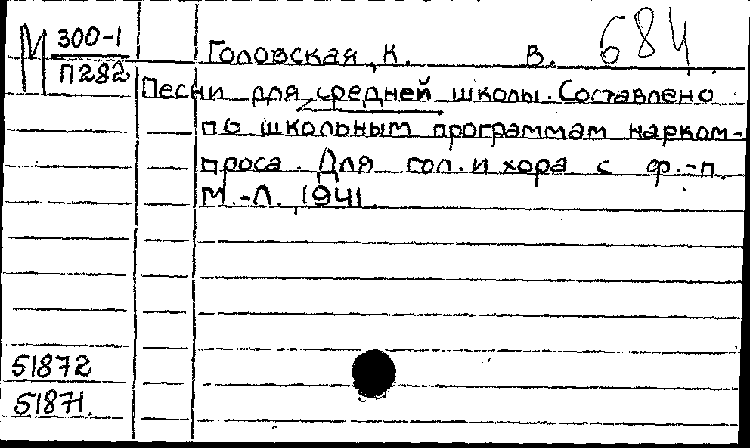 М 300-1
П282
Головская, К. В. 684
Песни для средней школы. Составлено
по школьным программам нарком-
проса. Для гол. и хора с ф.-п.
М.-Л. 1941.
51872
51871.